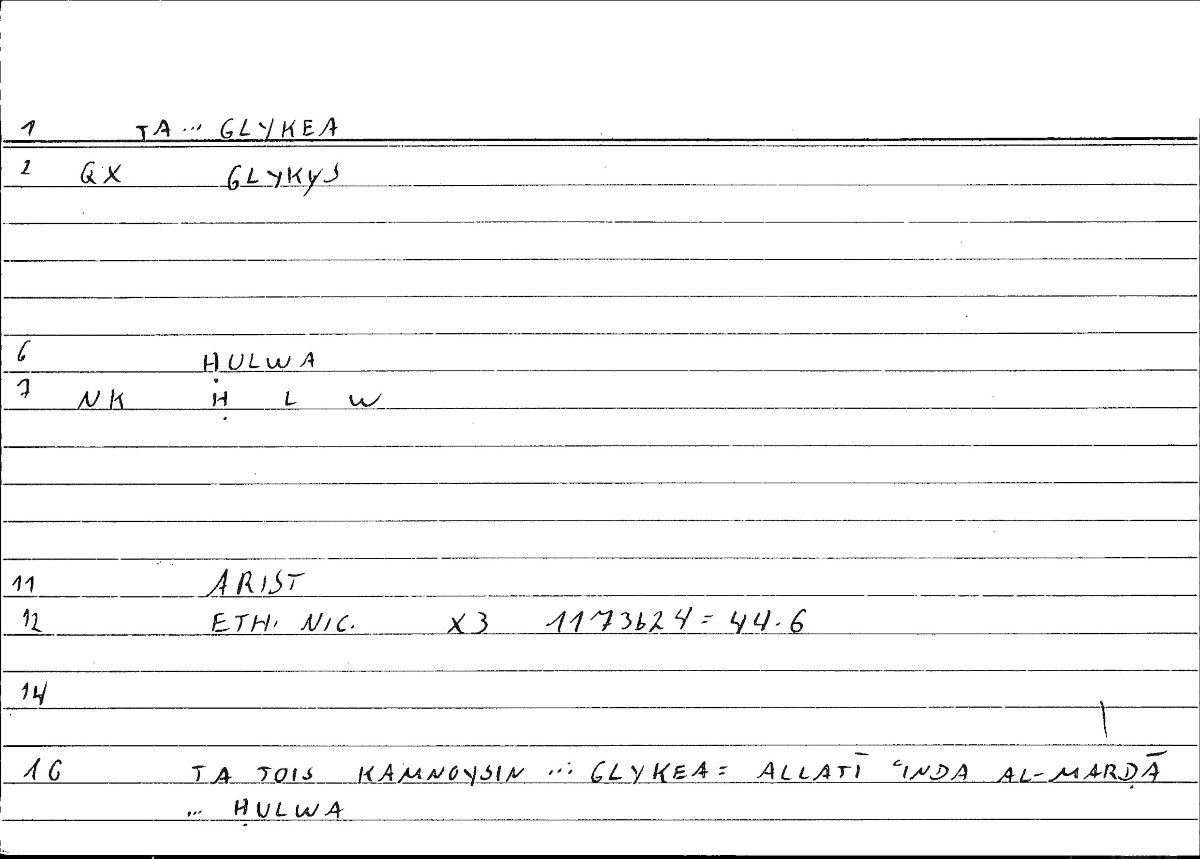 1 TA ... GLYKEA
2 QX GLYKYS
6 ḤULWA
7 NK Ḥ L W
11 ARIST
12 ETH. NIC. X3 1173b24 = 44.6
14
16 TA TOIS KAMNOYSIN ... GLYKEA = ALLATĪ ʿINDA AL-MARḌĀ
... ḤULWA